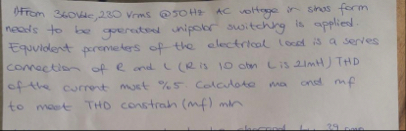 From 360Vdc, 230 Vrms @50Hz AC voltage in sinos form
needs to be generated unipolar switching is applied.
Equvident parometers of the electrical load is a series
connection of R and L (R is 10 ohm L is 21mH) THD
of the current must %5 Calculate ma and mf
to meet THD constrain (mf) min